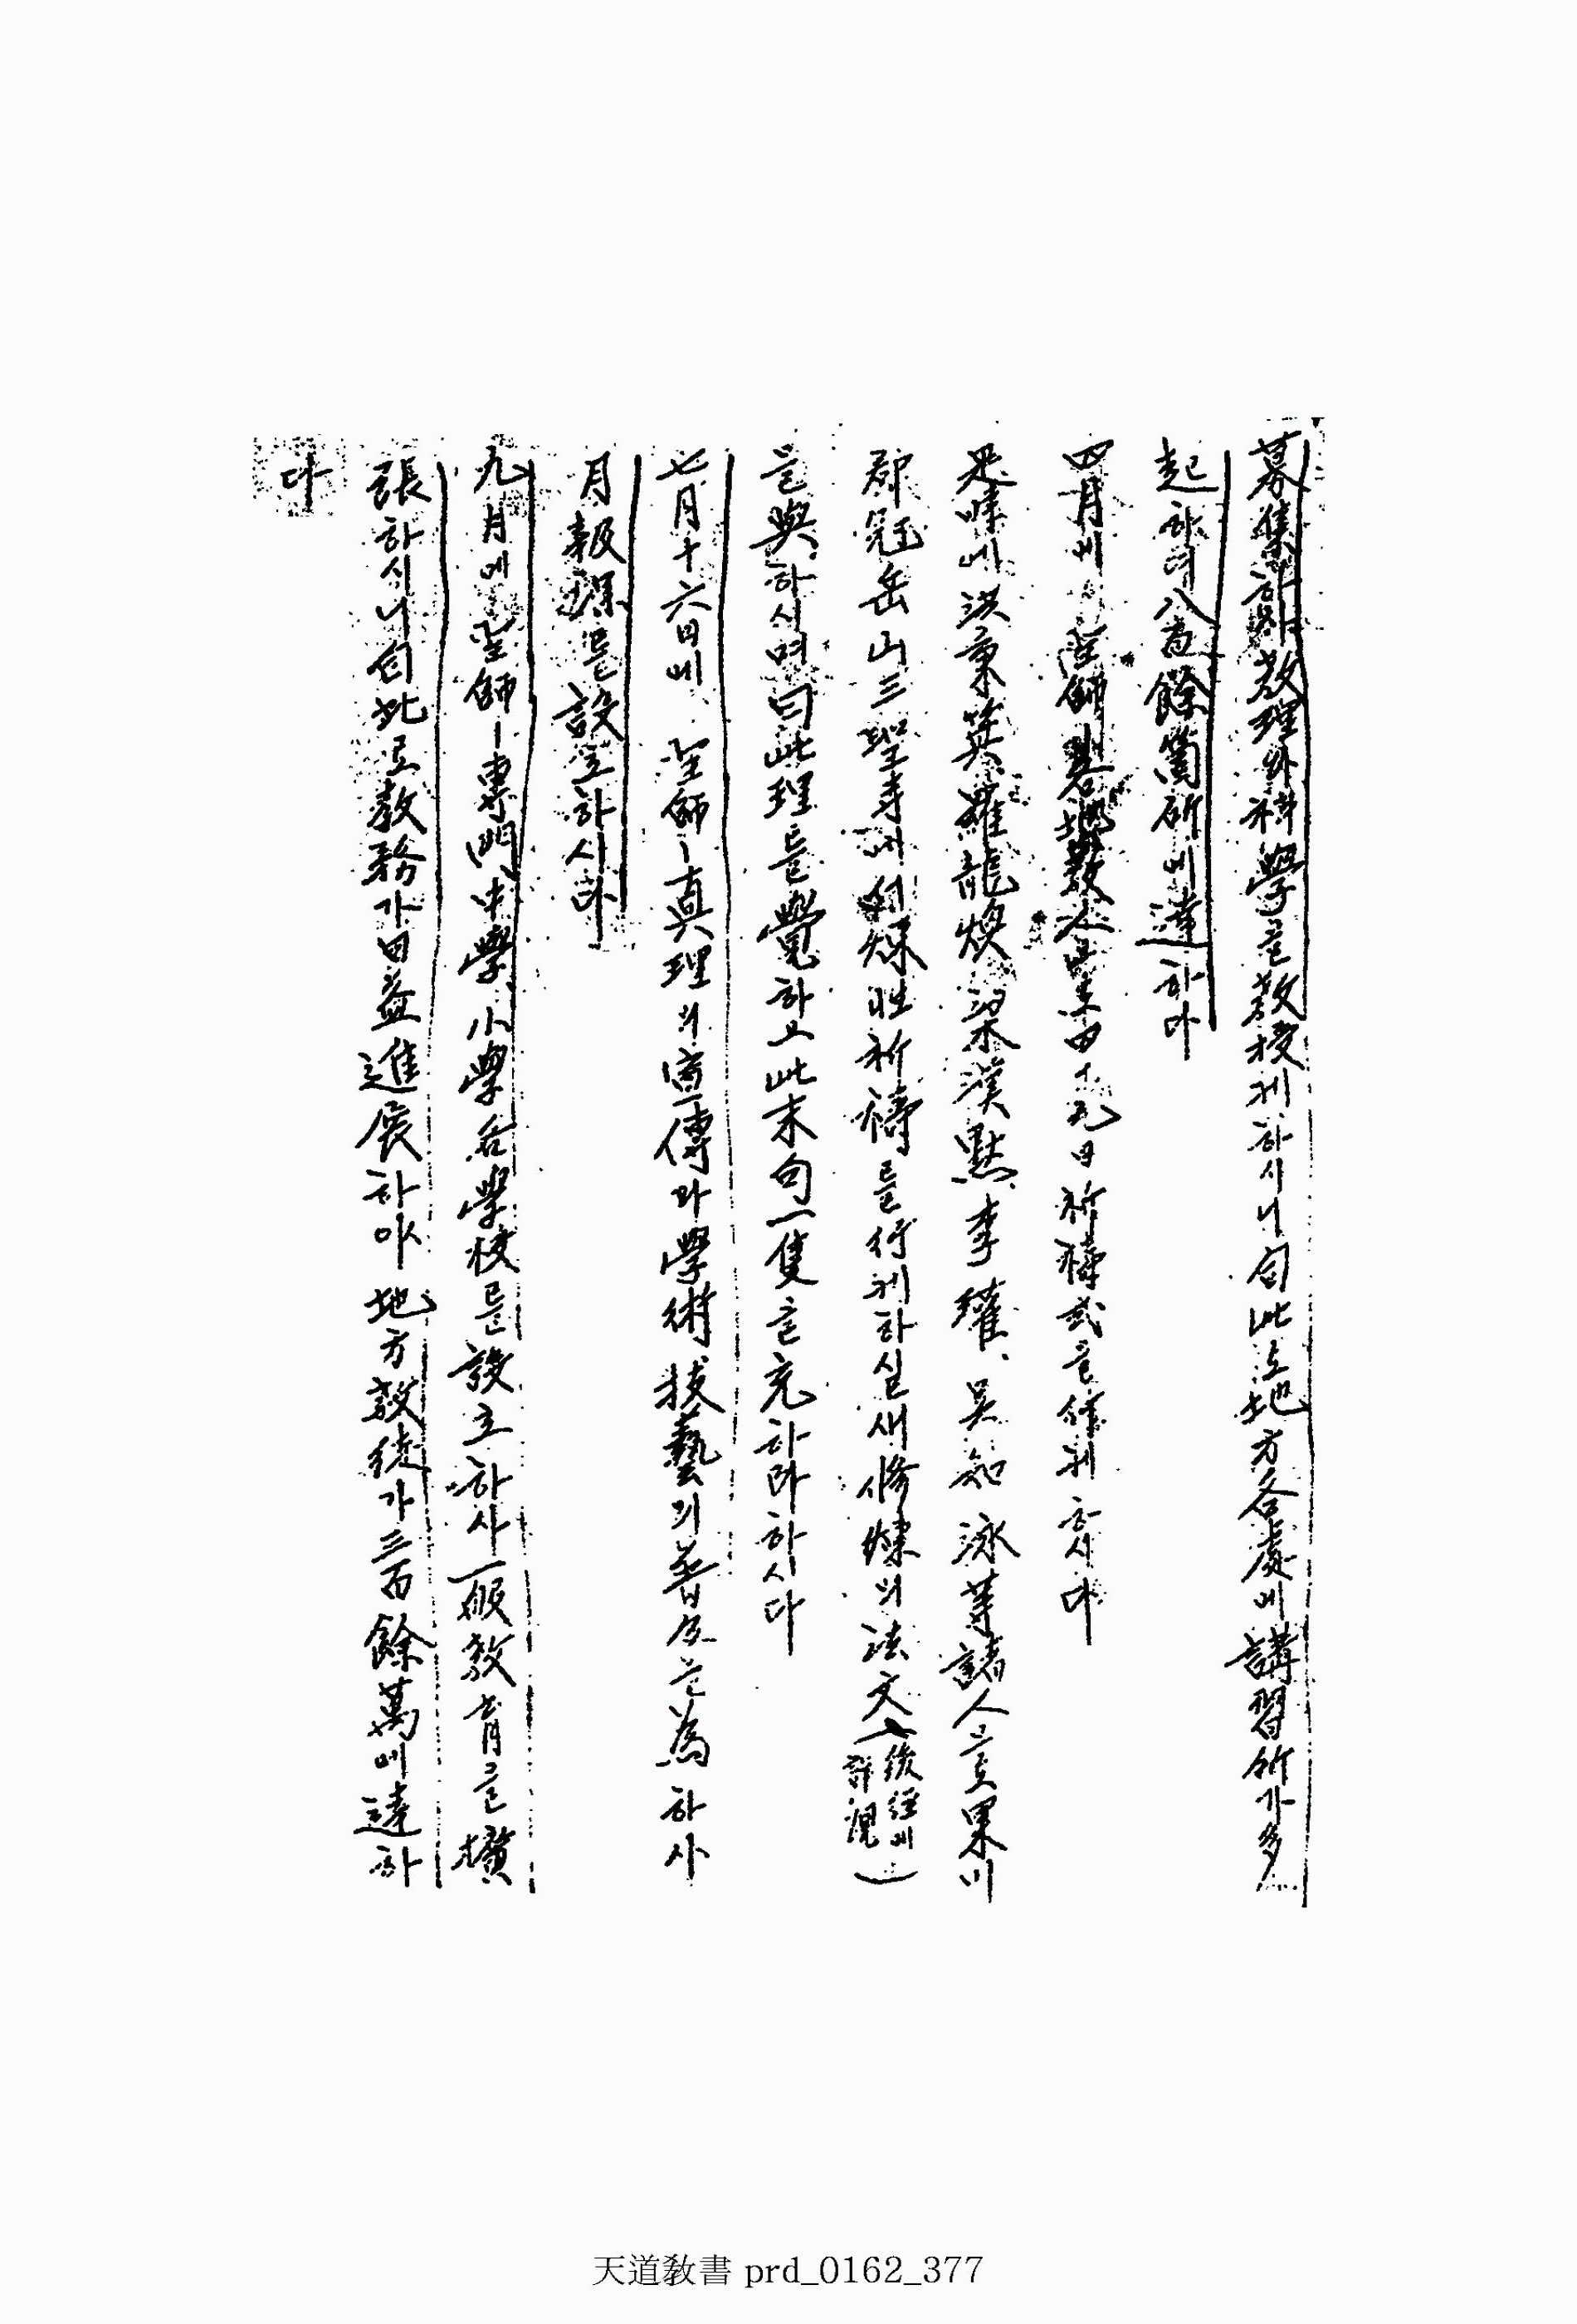 募集하야 敎理와 科學을 敎授케하시니 自此로 地方各處에 講習所가 多
起하야 八百餘箇所에 達하다
四月에 聖師 各地敎人 四十九日 祈禱式을 行케 하시다
是時에 洪秉箕 羅龍煥 梁漢默、李瓘、吳知泳 等 諸人으로 果川
郡 冠岳山 三聖寺에 煉性祈禱를 行케하실새 修煉의 法文(後經에 詳現)
을 與하시며 曰 此理를 覺하고 此 末句 一隻을 充하라 하시다
七月十六日에 聖師ㅣ 眞理의 宣傳과 學術技藝의 普及을 爲하사
月報課를 設立하시다
九月에 聖師ㅣ 專門 中學、小學 各學校를 設立하사 一般敎育을 擴
張하시니 自此로 敎務가 日益進展하야 地方敎徒가 三百餘萬에 達하
다
天道敎書 prd_0162_377